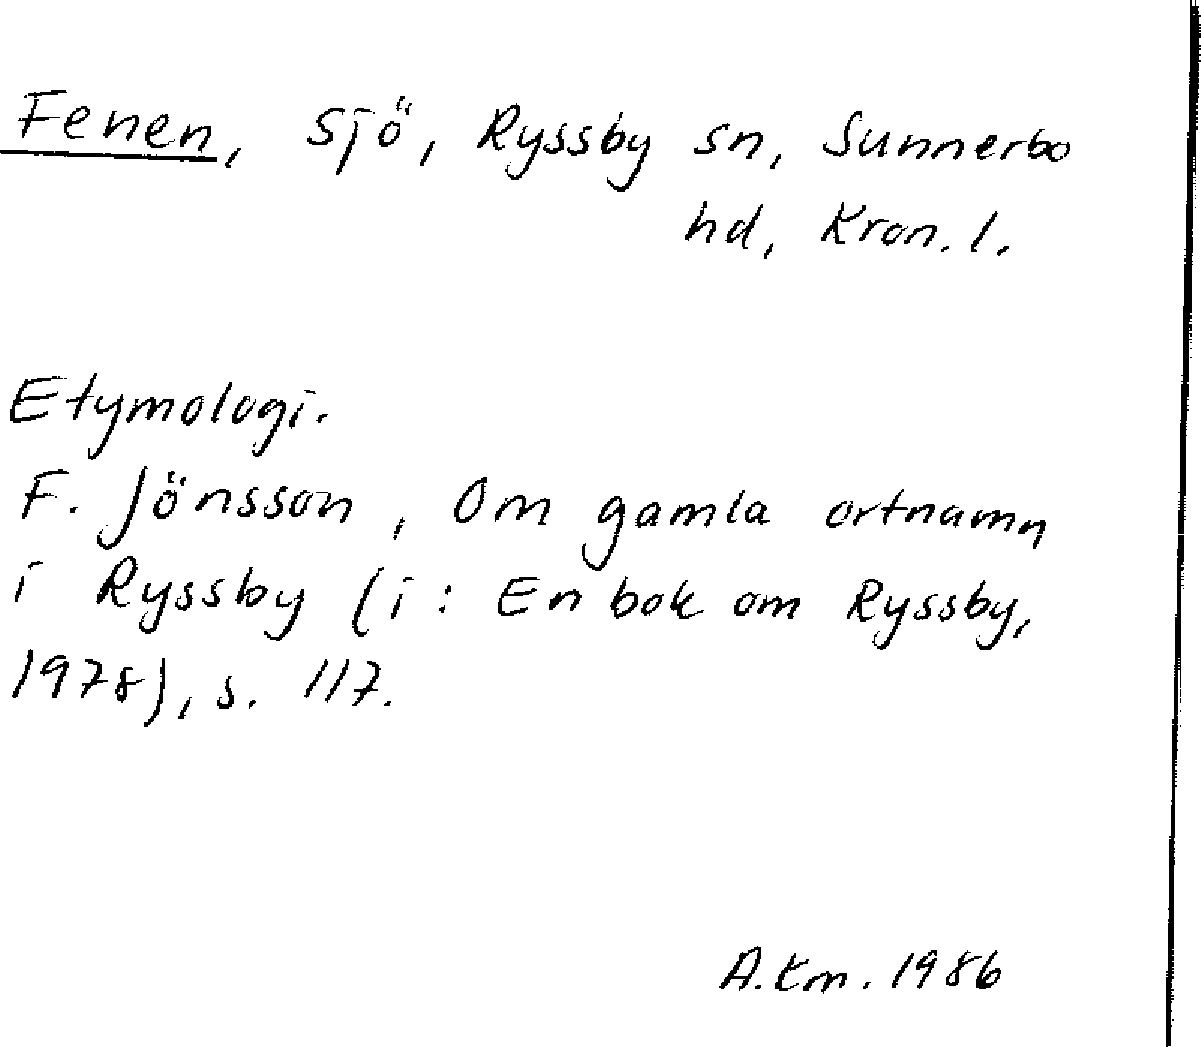 Fenen, sjö, Ryssby sn, Sunnerbo
hd, Kron. l.
Etymologi.
F. Jönsson, Om gamla ortnamn
i Ryssby (i: En bok om Ryssby,
1978), s. 117.
A.Km. 1986